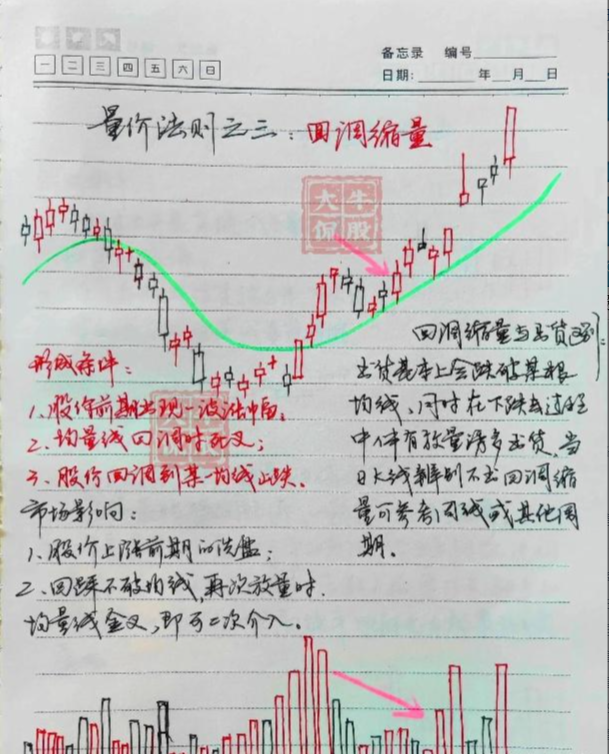 备忘录 编号
一 二 三 四 五 六 日
日期: 年 月 日
量价法则之三：回调缩量
大牛
侃股
回调缩量与出货区别：
出货基本上会跌破某根
均线，同时在下跌的过程
中伴有放量滞涨出货，当
日K线辨别不出回调缩
量可参考周线或其他周
期。
形成条件：
1、股价前期出现一波涨幅。
2、均量线回调时死叉；
3、股价回调到某一均线止跌。
市场影响：
1、股价上涨前期的洗盘；
2、回踩不破均线，再次放量时，
均量线金叉，即可二次介入。